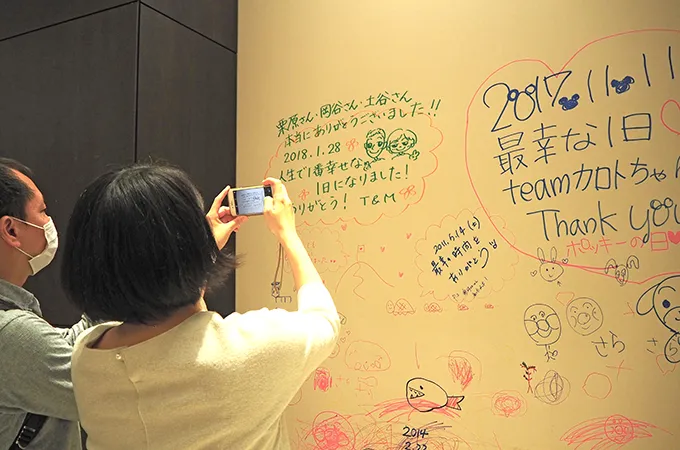 栗原さん・岡谷さん・土谷さん
本当にありがとうございました!!
2018.1.28
人生で1番幸せな
1日になりました!
ありがとう! T&M
2017.11.11
最幸な1日
teamカロトちゃん
Thank you
ポロッキーの日
最幸の時間を
ありがとう
さら
2014